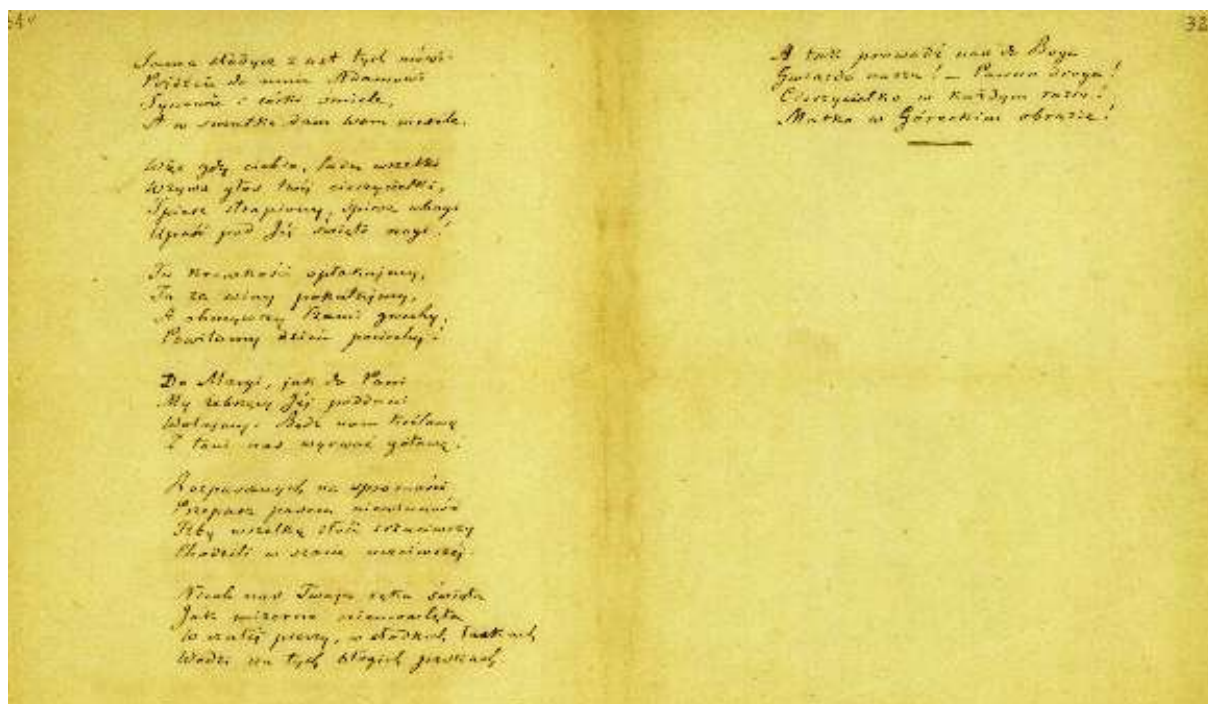 34
Sama słodycz z ust tych mówi:
Pójdźcie do mnie Adamowi
Synowie i córki śmiele,
A w smutku dam Wam wesele.
Więc gdy ciebie, ludu wszelki
Wzywa głos twój cieszycielki,
Spiesz strapiony, spiesz ubogi
Upaść pod Jéj święte nogi!
Tu krewkości opłakujmy,
Tu za winy pokutujmy,
A obmywszy łzami grzechy,
Powitamy dzień pociechy!
Do Maryi, jak do Pani
My żebrzący Jéj poddani
Wołajmy: Bądź nam Królową
I toni nas wyrwać gotową!
Rozpasanych na sprosności
Przepasz pasem niewinności
Żeby wszelką złość
Chodzili w szacie
Niech nas Twoja ręka święta
Jak mizerne niemowlęta
W całéj pieczy, w słodkich łaskach
Wodzi na tych błogich paskach
32
A tak prowadź nas do Boga
Gwiazdo nasza! – Pewna droga!
Cieszycielko w każdym razie!
Matko w Góreckim obrazie!